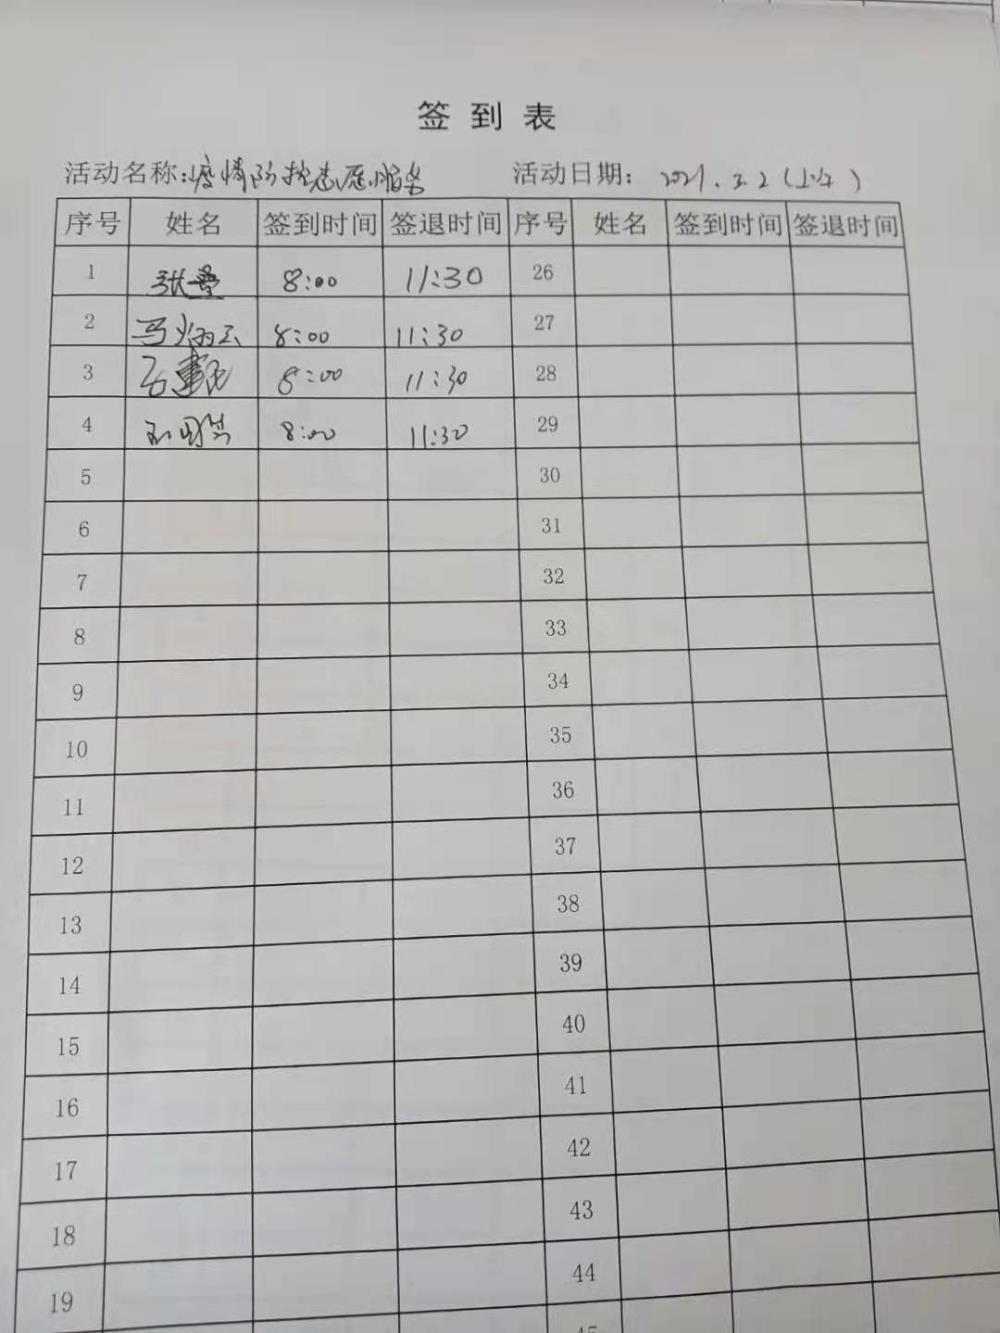 签到表
活动名称:疫情防控志愿服务 活动日期: 2021.3.2(上午)
序号 姓名 签到时间 签退时间 序号 姓名 签到时间 签退时间
1 张 8:00 11:30 26
2 马炳云 8:00 11:30 27
3 8:00 11:30 28
4 8:00 11:30 29
5 30
6 31
7 32
8 33
9 34
10 35
11 36
12 37
13 38
14 39
15 40
16 41
17 42
18 43
19 44
45